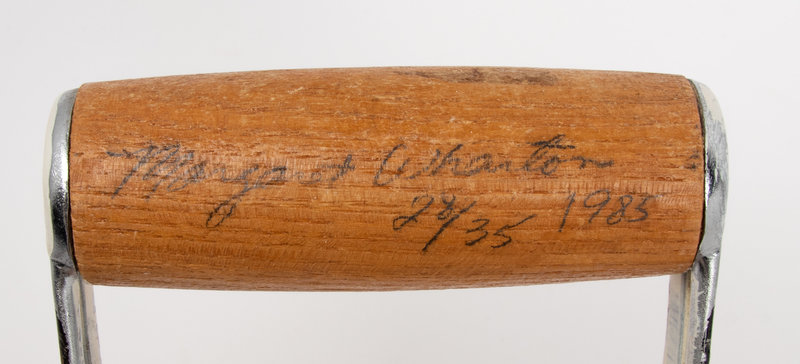 Margaret Wharton
28/35 1985